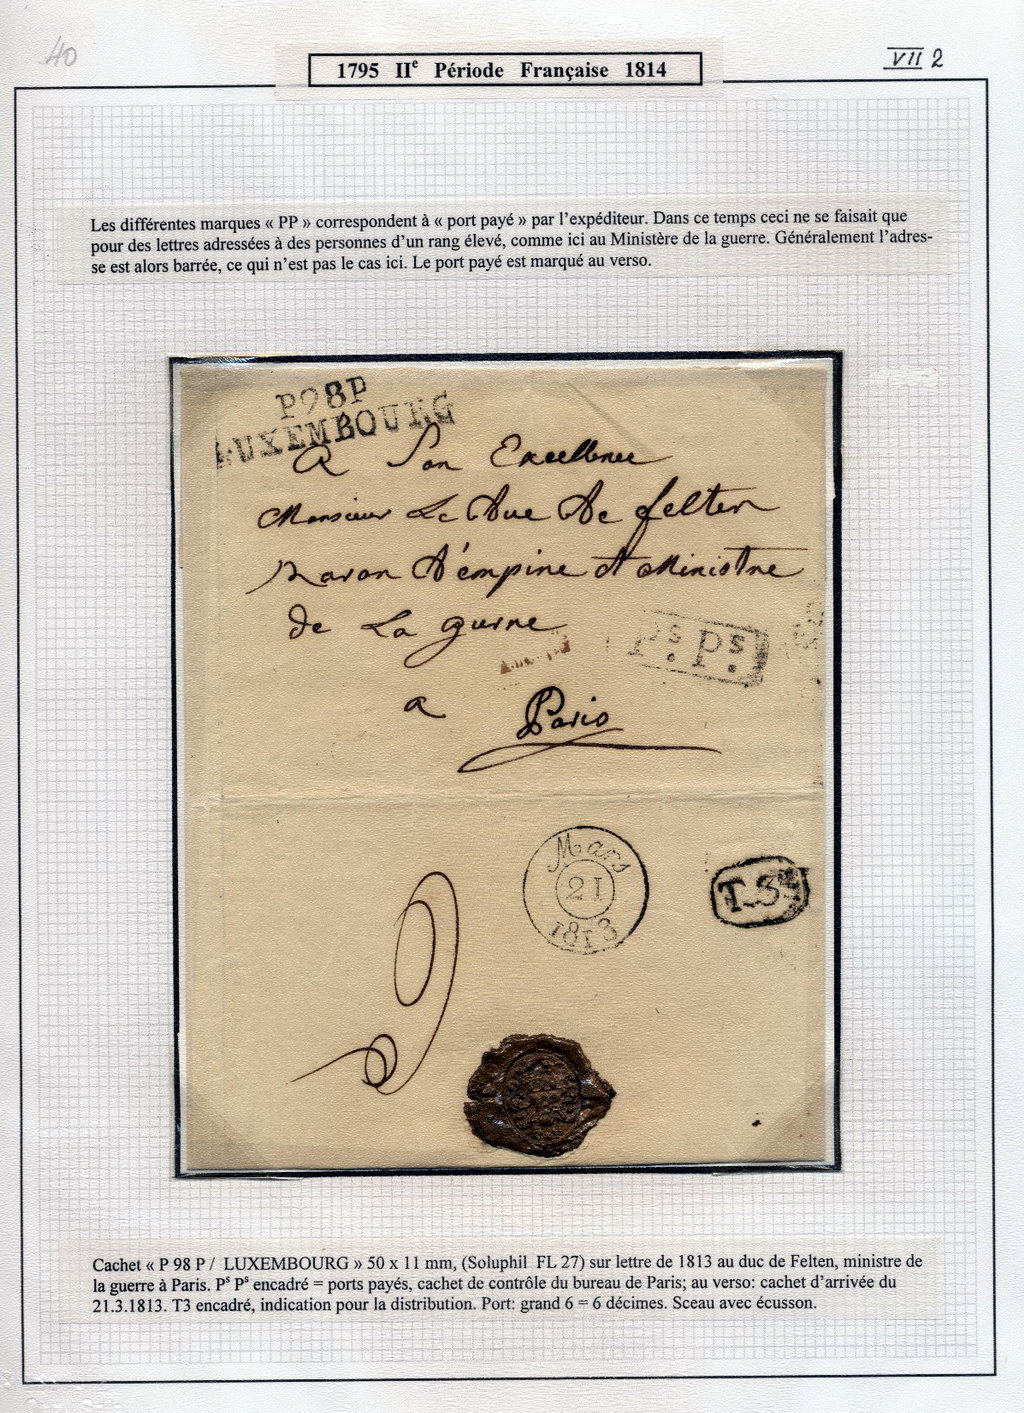 40
VII 2
1795 IIe Période Française 1814
Les différentes marques « PP » correspondent à « port payé » par l'expéditeur. Dans ce temps ceci ne se faisait que
pour des lettres adressées à des personnes d'un rang élevé, comme ici au Ministère de la guerre. Généralement l'adres-
se est alors barrée, ce qui n'est pas le cas ici. Le port payé est marqué au verso.
P98P
LUXEMBOURG
A Son Excellence
Monsieur Le Duc De felten
D'empire et Ministre
de La guerre
Ps. Ps.
a Paris
Mars
21
1813
T.3
Cachet « P 98 P / LUXEMBOURG » 50 x 11 mm, (Soluphil FL 27) sur lettre de 1813 au duc de Felten, ministre de
la guerre à Paris. Ps Ps encadré = ports payés, cachet de contrôle du bureau de Paris; au verso: cachet d'arrivée du
21.3.1813. T3 encadré, indication pour la distribution. Port: grand 6 = 6 décimes. Sceau avec écusson.